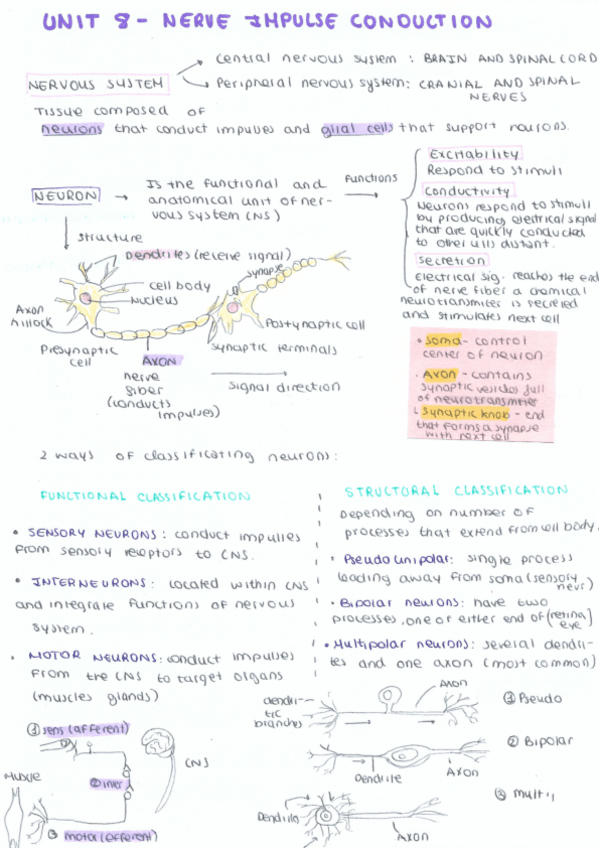 UNIT 8 - NERVE IMPULSE CONDUCTION
NERVOUS SYSTEM
Central nervous system : BRAIN AND SPINAL CORD
Peripheral nervous system: CRANIAL AND SPINAL
NERVES
Tissue composed of
neurons that conduct impulses and glial cells that support neurons.
NEURON
Is the functional and
anatomical unit of ner-
vous system (NS)
Functions
Excitability
Respond to stimuli
Conductivity
Neurons respond to stimuli
by producing electrical signal
that are quickly conducted
to other cells distant.
Secretion
Electrical sig. reaches the end
of nerve fiber a chemical
neurotransmiter is secreted
and stimulates next cell
structure
Dendrites (receive signal)
cell body
Nucleus
Axon
hillock
synapse
Postynaptic cell
Presynaptic
cell
AXON
nerve
fiber
(conducts
impulses)
Synaptic terminals
Signal direction
• Soma - control
center of neuron
• Axon - contains
synaptic vesicles full
of neurotransmiter
Synaptic knob - end
that forms a synapse
with next cell
2 ways of classificating neurons:
FUNCTIONAL CLASSIFICATION
• SENSORY NEURONS: conduct impulses
from sensory receptors to CNS.
• INTERNEURONS: located within CNS
and integrate functions of nervous
system.
• MOTOR NEURONS: conduct impulses
from the CNS to target organs
(muscles glands)
① sens (afferent)
Muscle
② inter
③ motor (efferent)
CNS
STRUCTORAL CLASSIFICATION
Depending on number of
processes that extend from cell body.
• Pseudounipolar: single process
leading away from soma (sensory
neur)
• Bipolar neurons: have two
processes, one or either end of (retina,
eye)
• Multipolar neurons: several dendri-
tes and one axon (most common)
dendri-
tic
branches
Axon
① Pseudo
Dendrite
Axon
② Bipolar
Axon
③ Multi